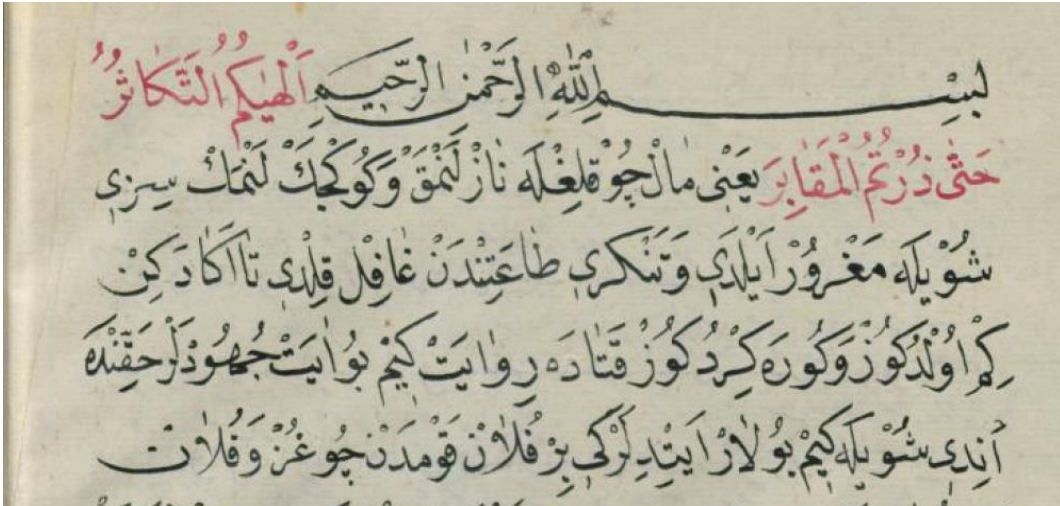 بِسْمِ اللّٰهِ الرَّحْمٰنِ الرَّحِيمِ اَلْهٰيكُمُ التَّكَاثُرُ
حَتّٰى زُرْتُمُ الْمَقَابِرَ يَعْنِى مَالْ چُوْقلِغْلَه نَازْلَنْمَقْ وَ كُوكْجَكْ لَنْمَكْ سِزِى
شُوْيلَه مَغْرُورْ اَيْلَدِى وَ تَنْكرِى طَاعَتِنْدَنْ غَافِلْ قِلْدِى تَا اَكَا دَكِنْ
كِمْ اُوْلْدُكُوزْ وَ كُورَه كِرْدُكُوزْ قَتَادَه رِوَايَتْ كِيمْ بُو اٰيَتْ جُهُودْلَرْ حَقِّنْدَه
اَنِدِى شُوْيلَه كِيمْ بُولَارْ اَيِتْدِلَرْ كِى بِزْ فُلَانْ قَوْمدَنْ چُوغُزْ وَ فُلَانْ